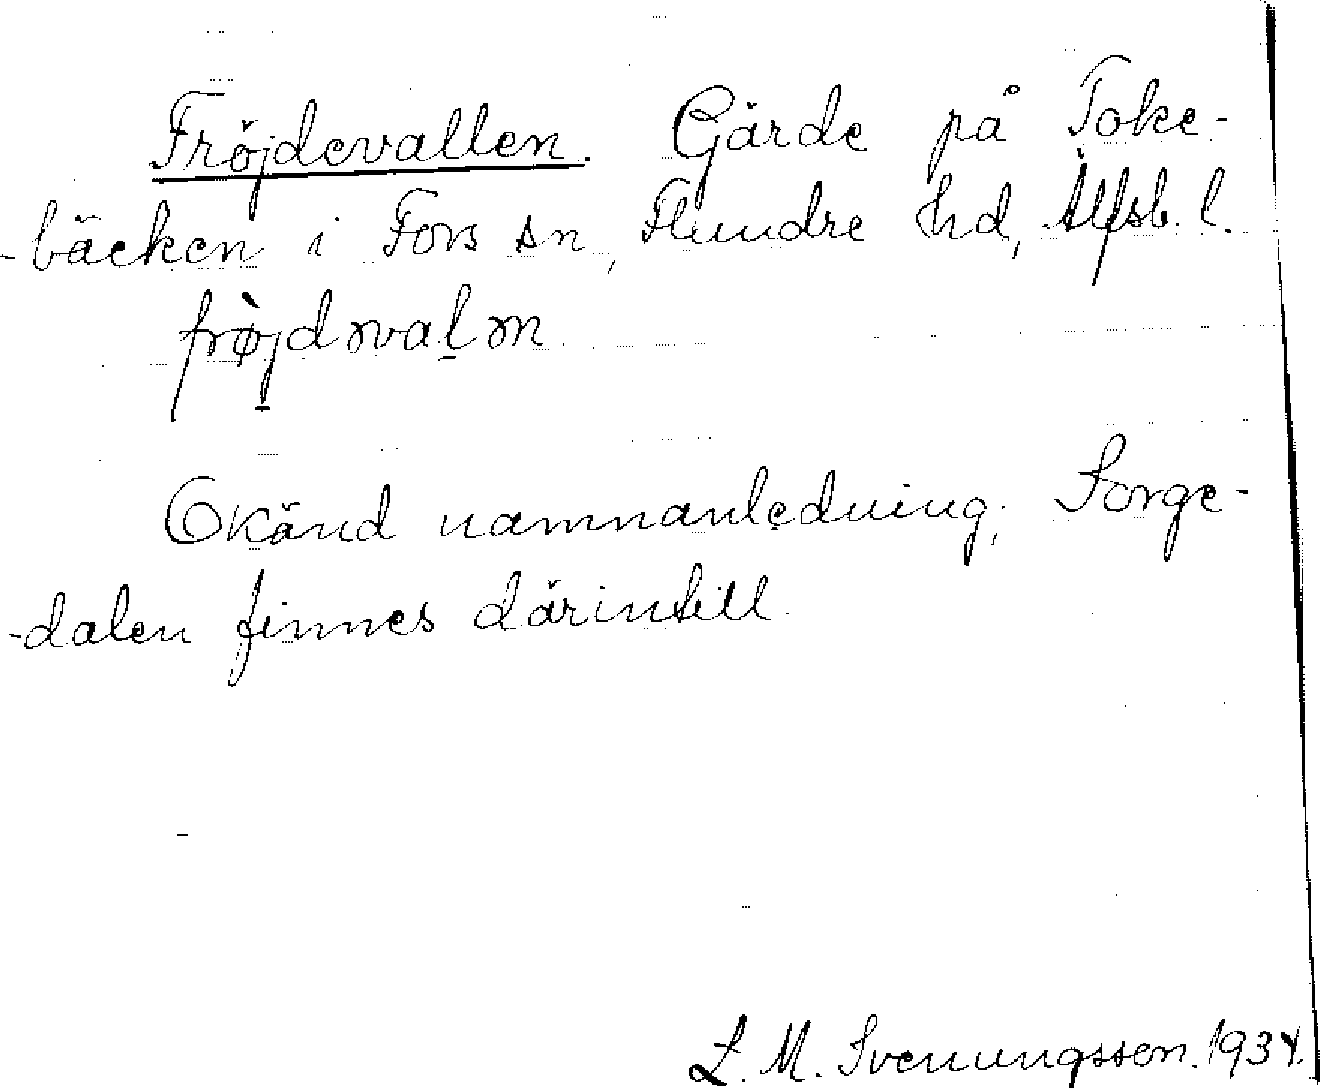 Fröjdevallen. Gärde på Toke-
-bäcken i Fors sn, Flundre hd, Älfsb. l.
Okänd namnanledning; Sorge-
-dalen finnes därintill.
L. M. Svenungsson. 1934.